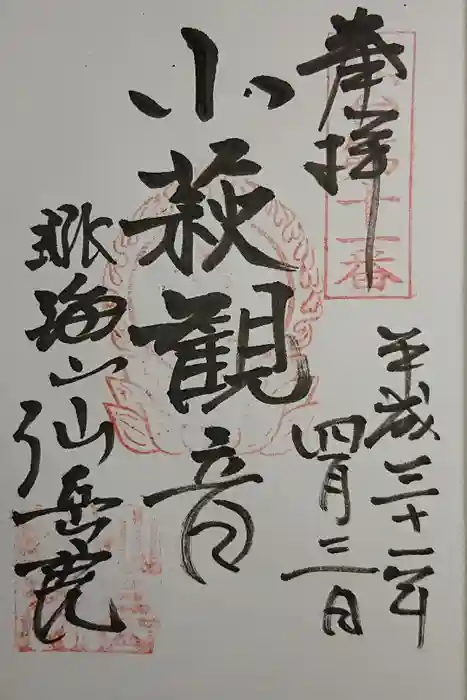 奉拝
第十一番
平成三十一年
四月二日
小萩観音
眺海山仙岳院